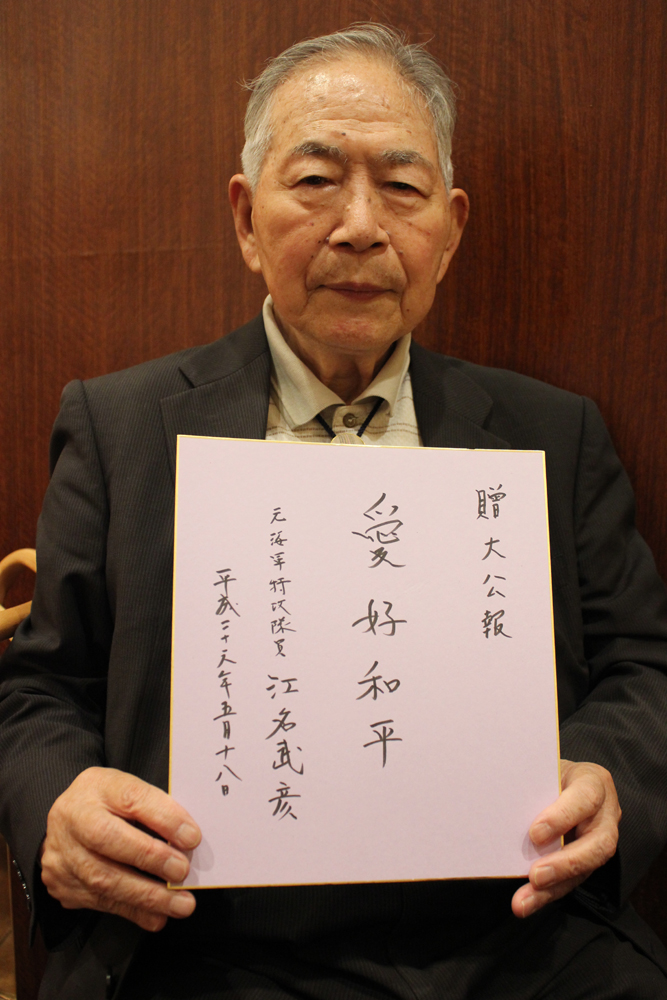 贈大公報
愛好和平
元海軍特攻隊員 江名武彦
平成二十六年五月十八日